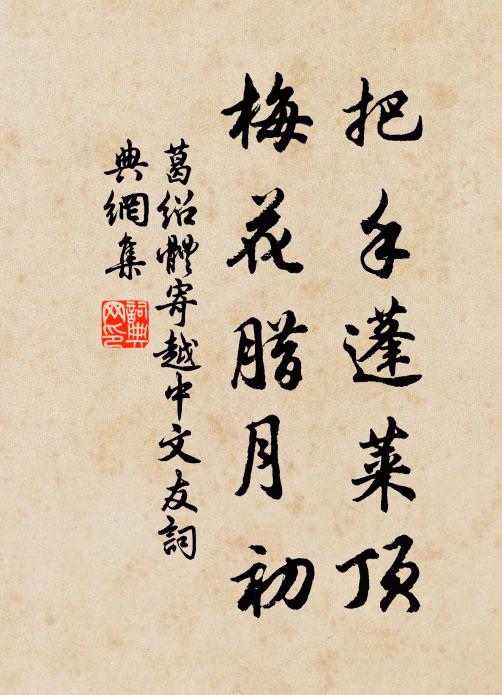 把手蓬萊頂
梅花腊月初
葛绍體寄越中文友詞
典網集
詞典
网印